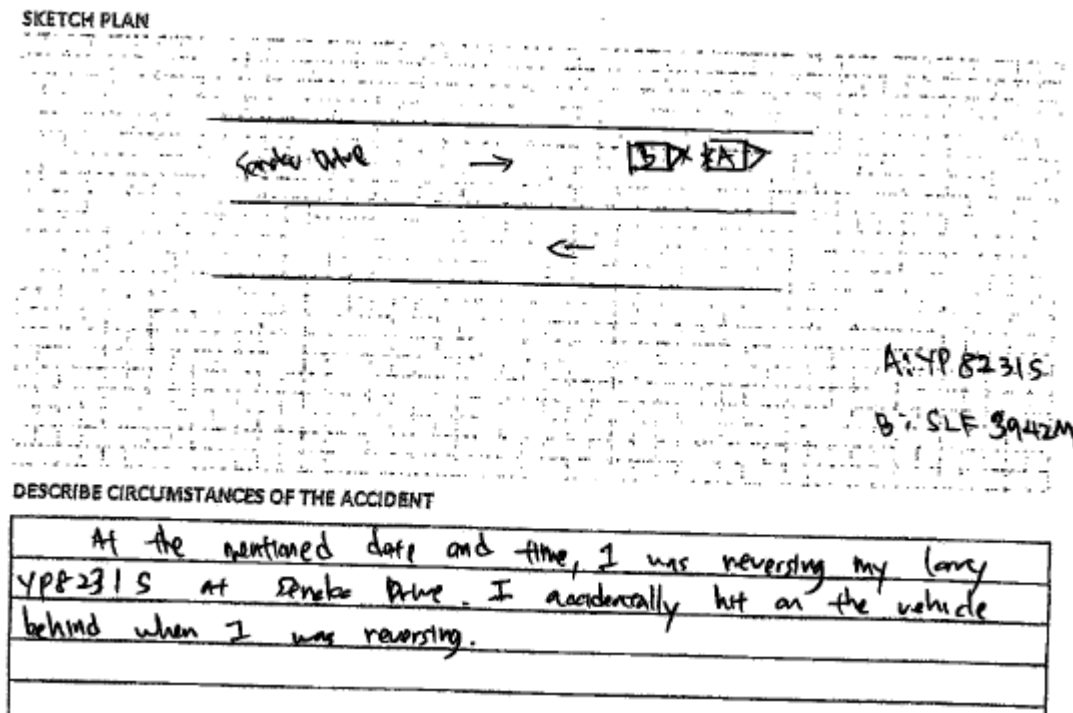 SKETCH PLAN
Drive → B A
←
A: YP 8231S
B: SLF 3942M
DESCRIBE CIRCUMSTANCES OF THE ACCIDENT
At the mentioned date and time, I was reversing my lorry
YP8231S at Drive. I accidentally hit on the vehicle
behind when I was reversing.